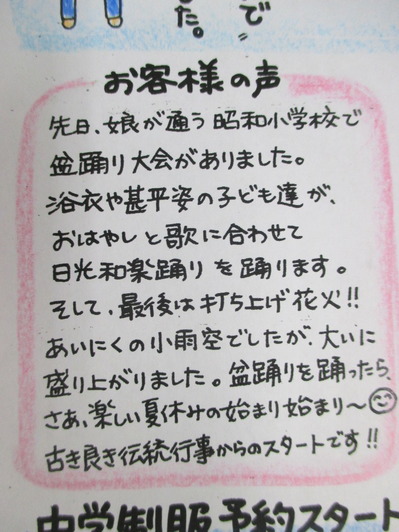 で〃
した。
お客様の声
先日、娘が通う昭和小学校で
盆踊り大会がありました。
浴衣や甚平姿の子ども達が、
おはやしと歌に合わせて
日光和楽踊りを踊ります。
そして、最後は打ち上げ花火!!
あいにくの小雨空でしたが、大いに
盛り上がりました。盆踊りを踊ったら、
さあ、楽しい夏休みの始まり始まり〜
古き良き伝統行事からのスタートです!!
中学制服予約スタート